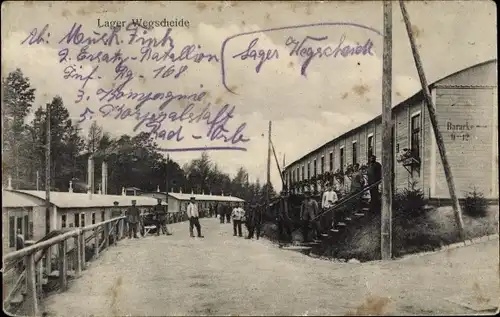 Lager Wegscheide
Ab: Musk. Fink
2. Ersatz-Bataillon
Inf. Rg. 168
3. Kompagnie
5. Korporalschaft
Bad-Orb
Lager Wegscheide
Baracke
9-12